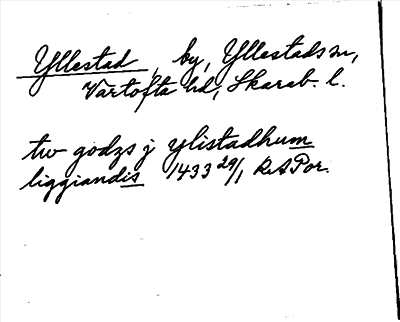 Yllestad, by, Yllestads sn,
Vartofta hd, Skarab. l.
tw godzs j ylistadhum
liggiandis 1433 29/1 RAPor.